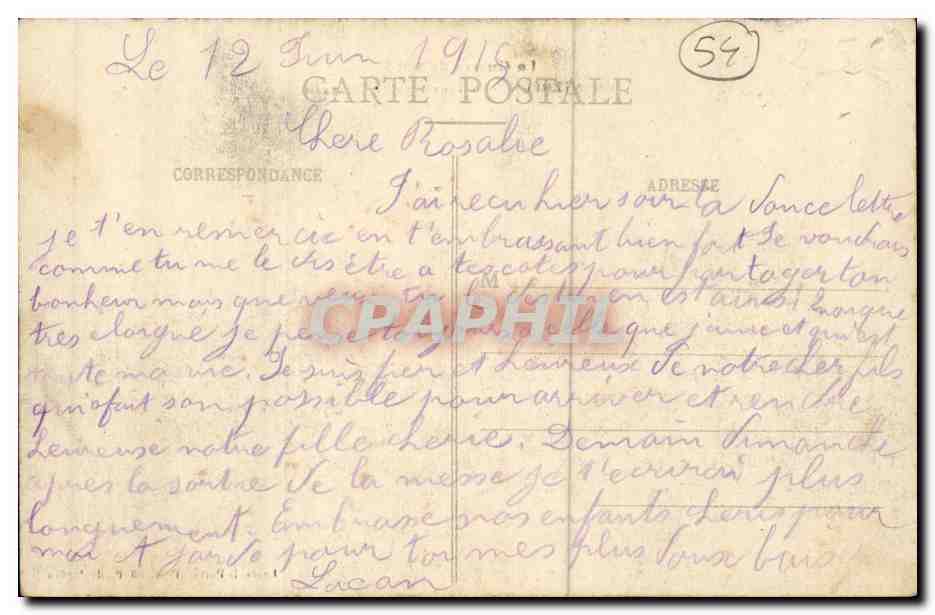 Le 12 Juin 1915
54
CARTE POSTALE
Chere Rosalie
CORRESPONDANCE
ADRESSE
J'ai recu hier soir ta douce lettre
je t'en remercie en t'embrassant bien fort Je voudrais
comme tu me le dis être a tes cotes pour partager ton
M
bonheur mais que veux tu la vie en est ainsi Quoique
tres eloigné je pense toujours a celle que j'aime et qui est
toute ma vie. Je suis fier et heureux de notre cher fils
qui a fait son possible pour arriver et rendre
heureuse notre fille cherie. Demain dimanche
apres la sortie de la messe je t'ecrirai plus
longuement. Embrasse nos enfants cheris pour
moi et garde pour toi mes plus doux baisers
Lucan
CPAPHIL